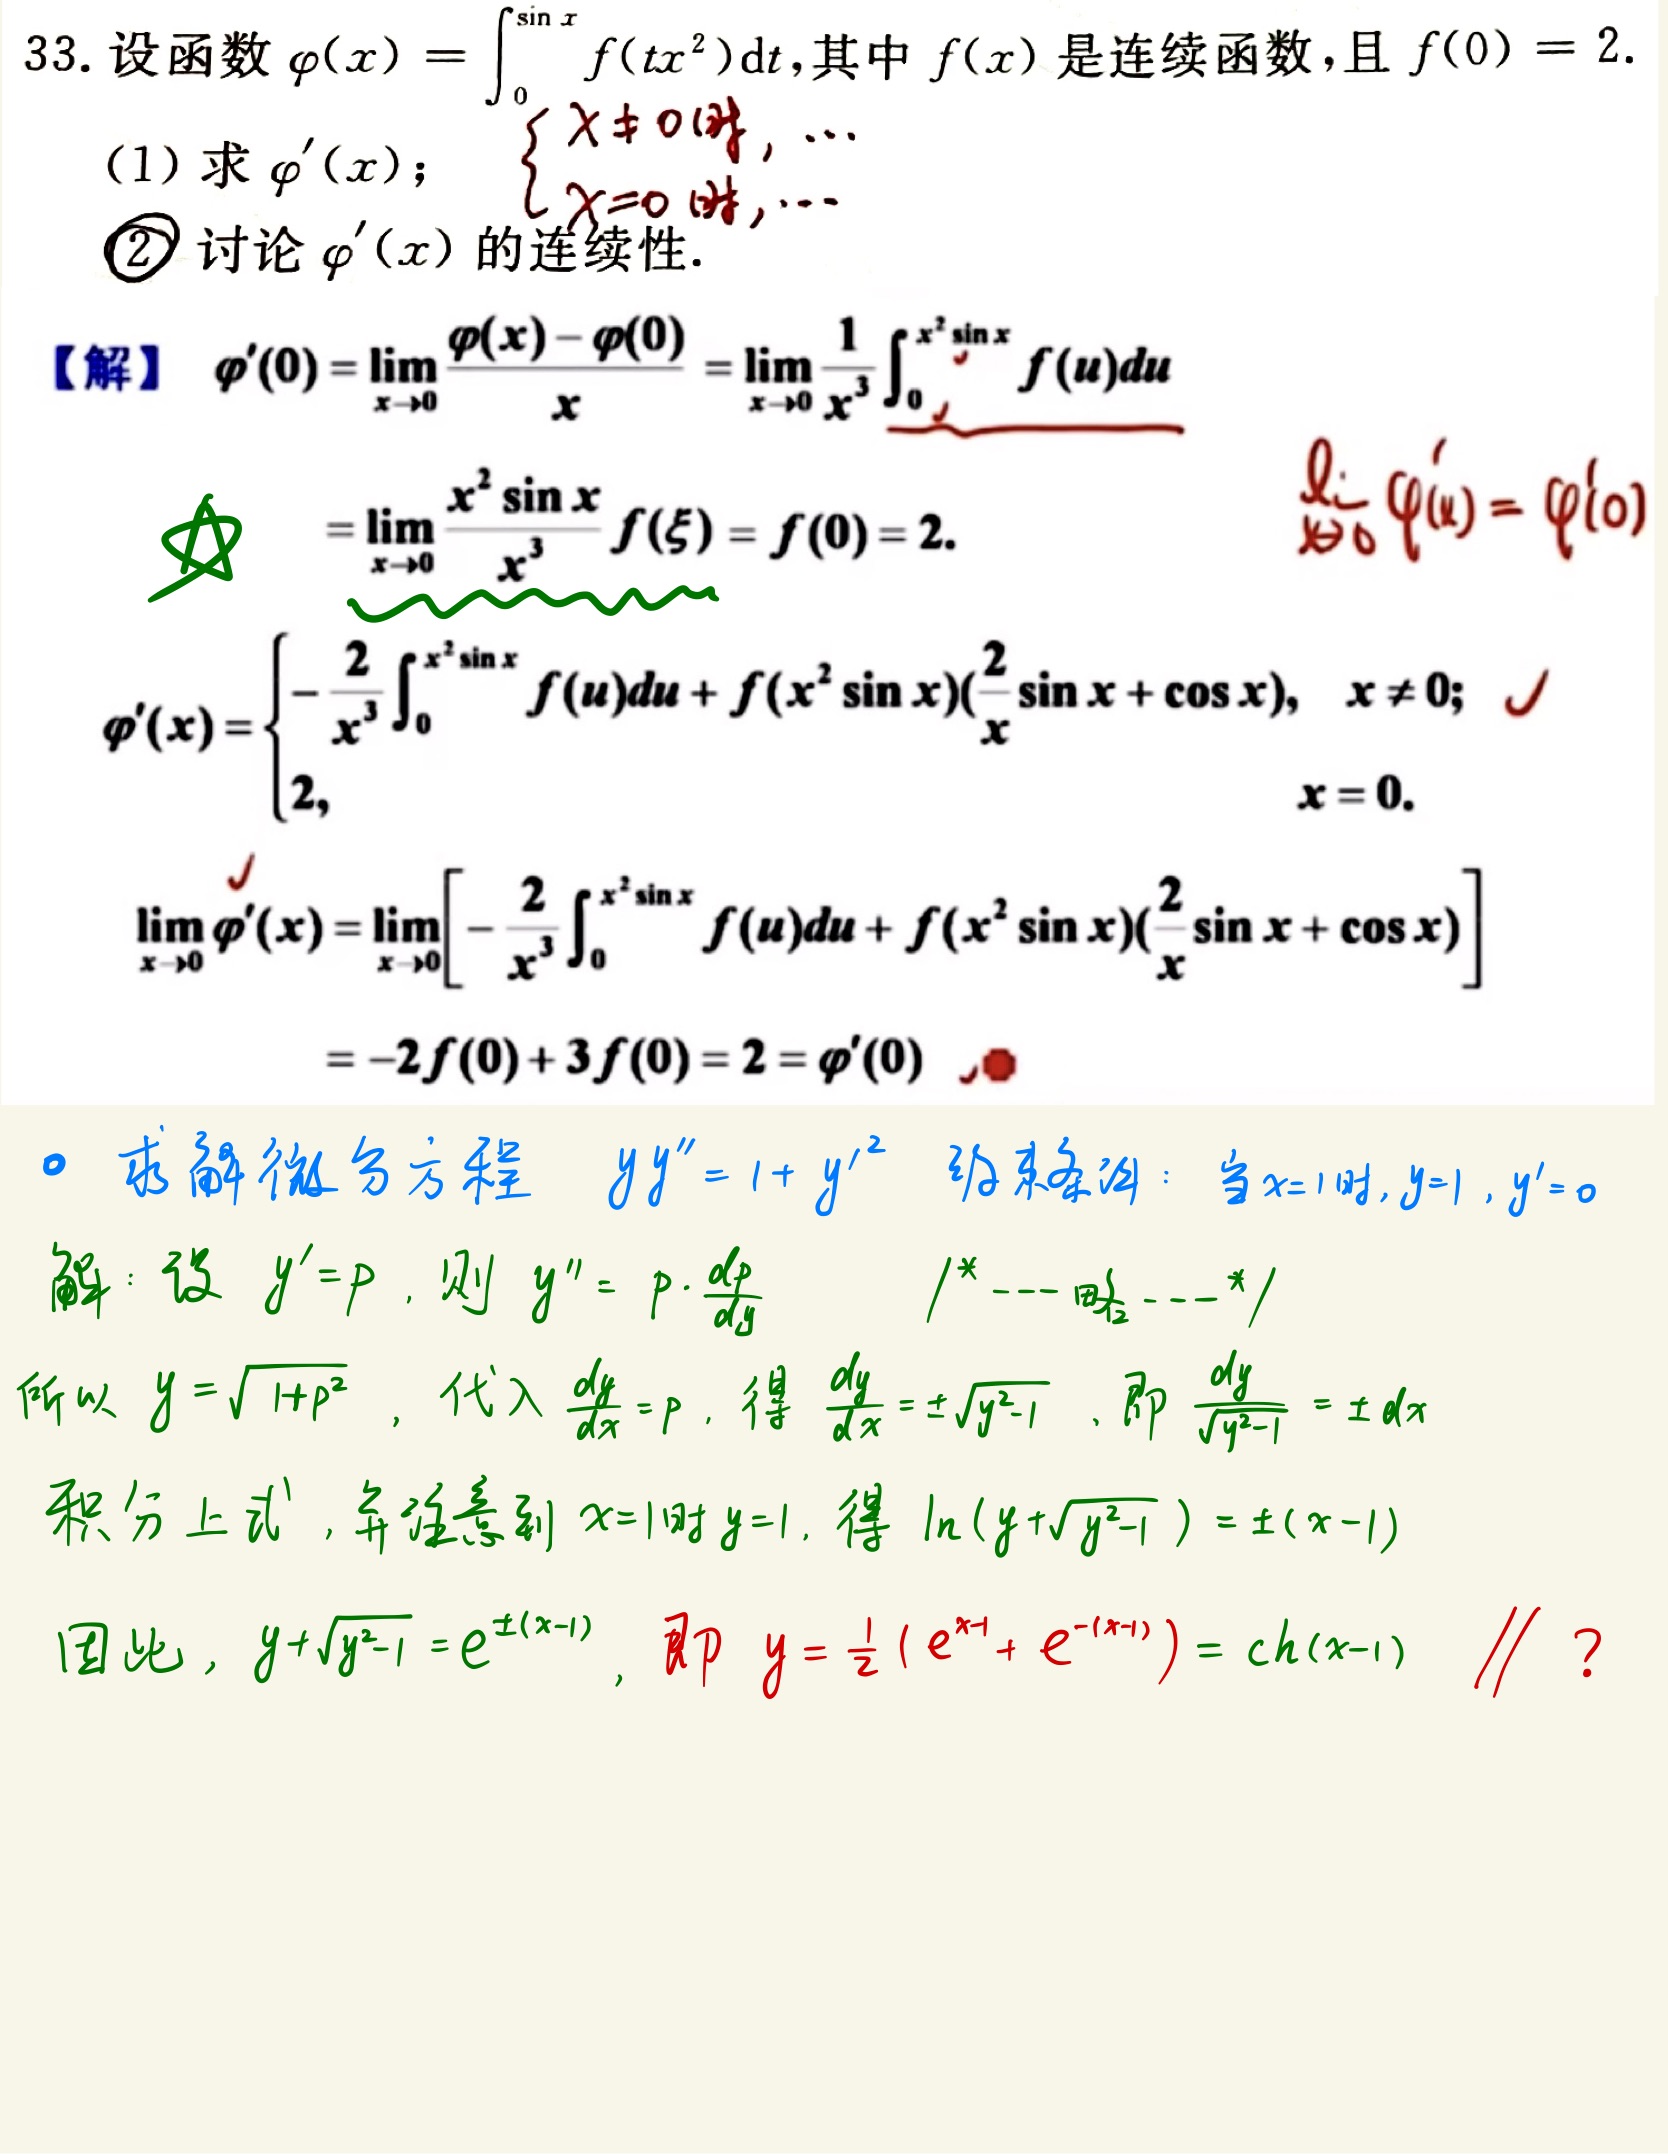 33. 设函数 φ(x) = ∫₀^{sin x} f(tx²)dt,其中 f(x) 是连续函数,且 f(0) = 2.
(1) 求 φ′(x);
{ x≠0时, …
x=0时, …
② 讨论 φ′(x) 的连续性.
【解】 φ′(0) = lim_{x→0} (φ(x) − φ(0))/x = lim_{x→0} 1/x³ ∫₀^{x² sin x} f(u)du
= lim_{x→0} (x² sin x)/x³ f(ξ) = f(0) = 2.
lim_{x→0} φ′(x) = φ′(0)
φ′(x) = { −2/x³ ∫₀^{x² sin x} f(u)du + f(x² sin x)(2/x sin x + cos x), x ≠ 0;
2, x = 0.
lim_{x→0} φ′(x) = lim_{x→0} [ −2/x³ ∫₀^{x² sin x} f(u)du + f(x² sin x)(2/x sin x + cos x) ]
= −2f(0) + 3f(0) = 2 = φ′(0)
求解微分方程 yy″ = 1 + y′² 约束条件: 当x=1时, y=1, y′=0
解: 设 y′=p, 则 y″ = p·dp/dy /* --- 略 --- */
所以 y = √(1+p²), 代入 dy/dx = p, 得 dy/dx = ±√(y²−1), 即 dy/√(y²−1) = ±dx
积分上式, 并注意到 x=1时 y=1, 得 ln(y+√(y²−1)) = ±(x−1)
因此, y+√(y²−1) = e^{±(x−1)}, 即 y = 1/2(e^{x−1} + e^{−(x−1)}) = ch(x−1) // ?